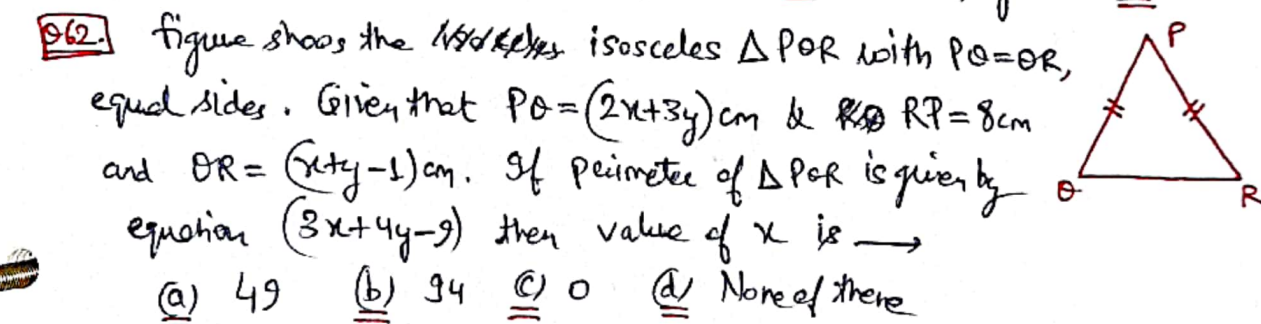 Q62. figure shoos the isosceles Δ PQR with PQ=QR,
equal sides. Given that PQ=(2x+3y)cm & RP=8cm
and QR=(x+y-1)cm. If perimeter of Δ PQR is given by
equation (3x+4y-9) then value of x is →
(a) 49 (b) 94 (c) 0 (d) None of there
P
Q
R